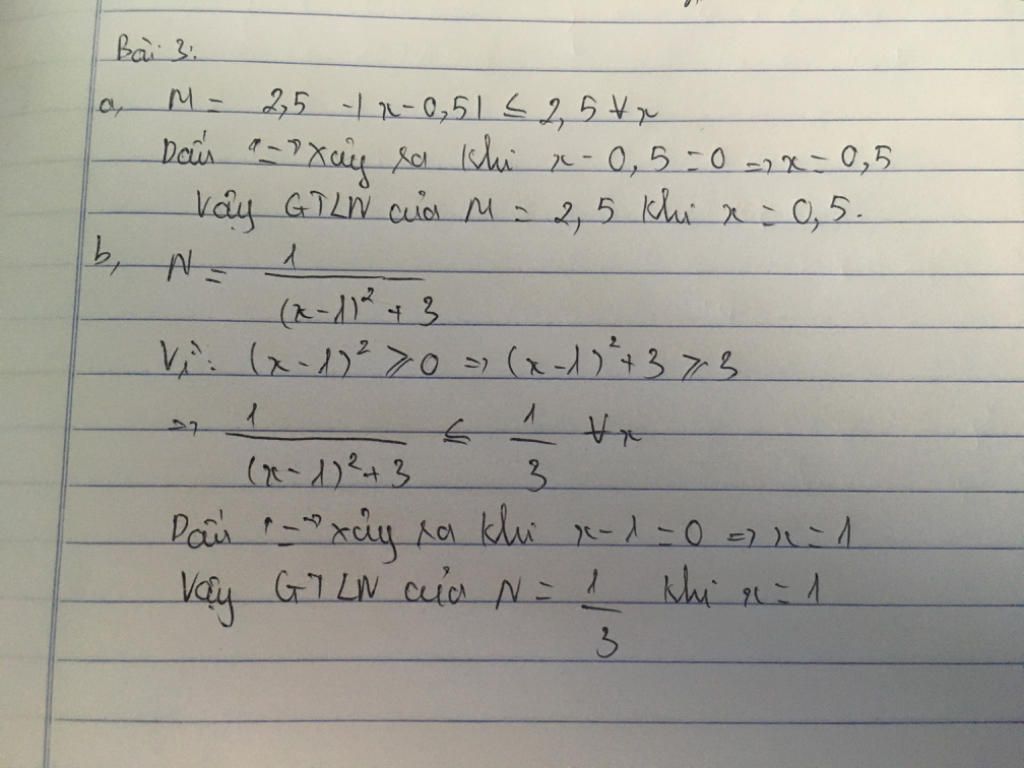 Bài 3:
a, M = 2,5 -|x-0,5| ≤ 2,5 ∀x
Dấu "=" xảy ra khi x-0,5=0 => x=0,5
Vậy GTLN của M = 2,5 khi x = 0,5.
b, N = 1/((x-1)²+3)
Vì: (x-1)² ≥ 0 => (x-1)²+3 ≥ 3
=> 1/((x-1)²+3) ≤ 1/3 ∀x
Dấu "=" xảy ra khi x-1=0 => x=1
Vậy GTLN của N = 1/3 khi x=1